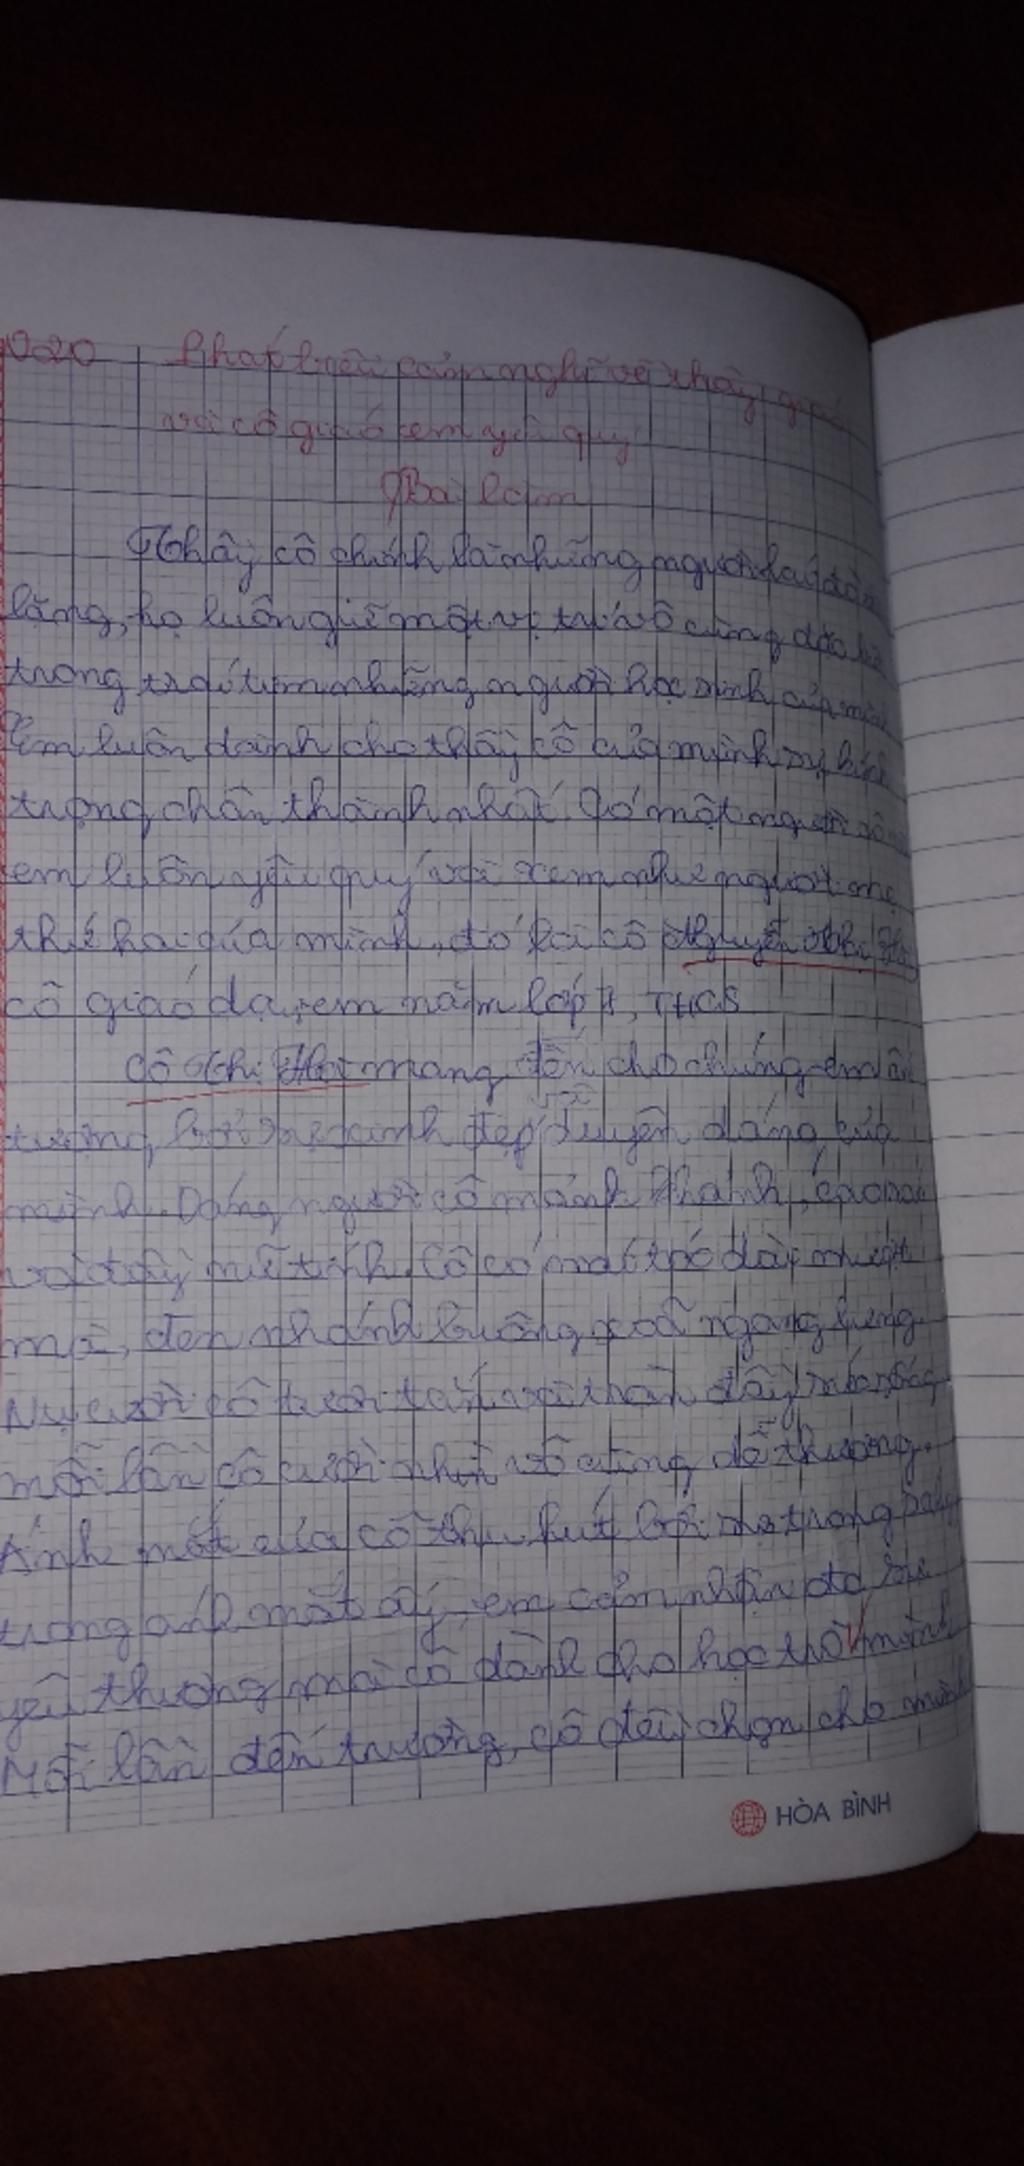 020 Phát biểu cảm nghĩ về thầy giáo
và cô giáo em yêu quý
Bài làm
Thầy cô chính là những người lái đò
lặng, họ luôn giữ một vị trí vô cùng đặc
trong trái tim những người học sinh của mình
Em luôn dành cho thầy cô của mình sự kính
trọng chân thành nhất. Có một người cô
em luôn yêu quý và xem như người mẹ
thứ hai của mình, đó là cô Nguyễn Thị
cô giáo dạy em năm lớp THCS
Cô Thị mang đến cho chúng em ấn
tượng bởi xinh đẹp duyên dáng của
mình. Dáng người cô mảnh khảnh, cao
và đầy nữ tính. Cô có mái tóc dài mượt
mà, đen nhánh buông xoã ngang lưng.
Nụ cười cô tươi tắn
mỗi lần cô cười nhìn vô cùng dễ thương.
Ánh mắt của cô thu hút bởi trong
trong ánh mắt ấy, em cảm nhận đc sự
yêu thương mà cô dành cho học trò mình
Mỗi lần đến trường, cô đều chọn cho mình
HÒA BÌNH